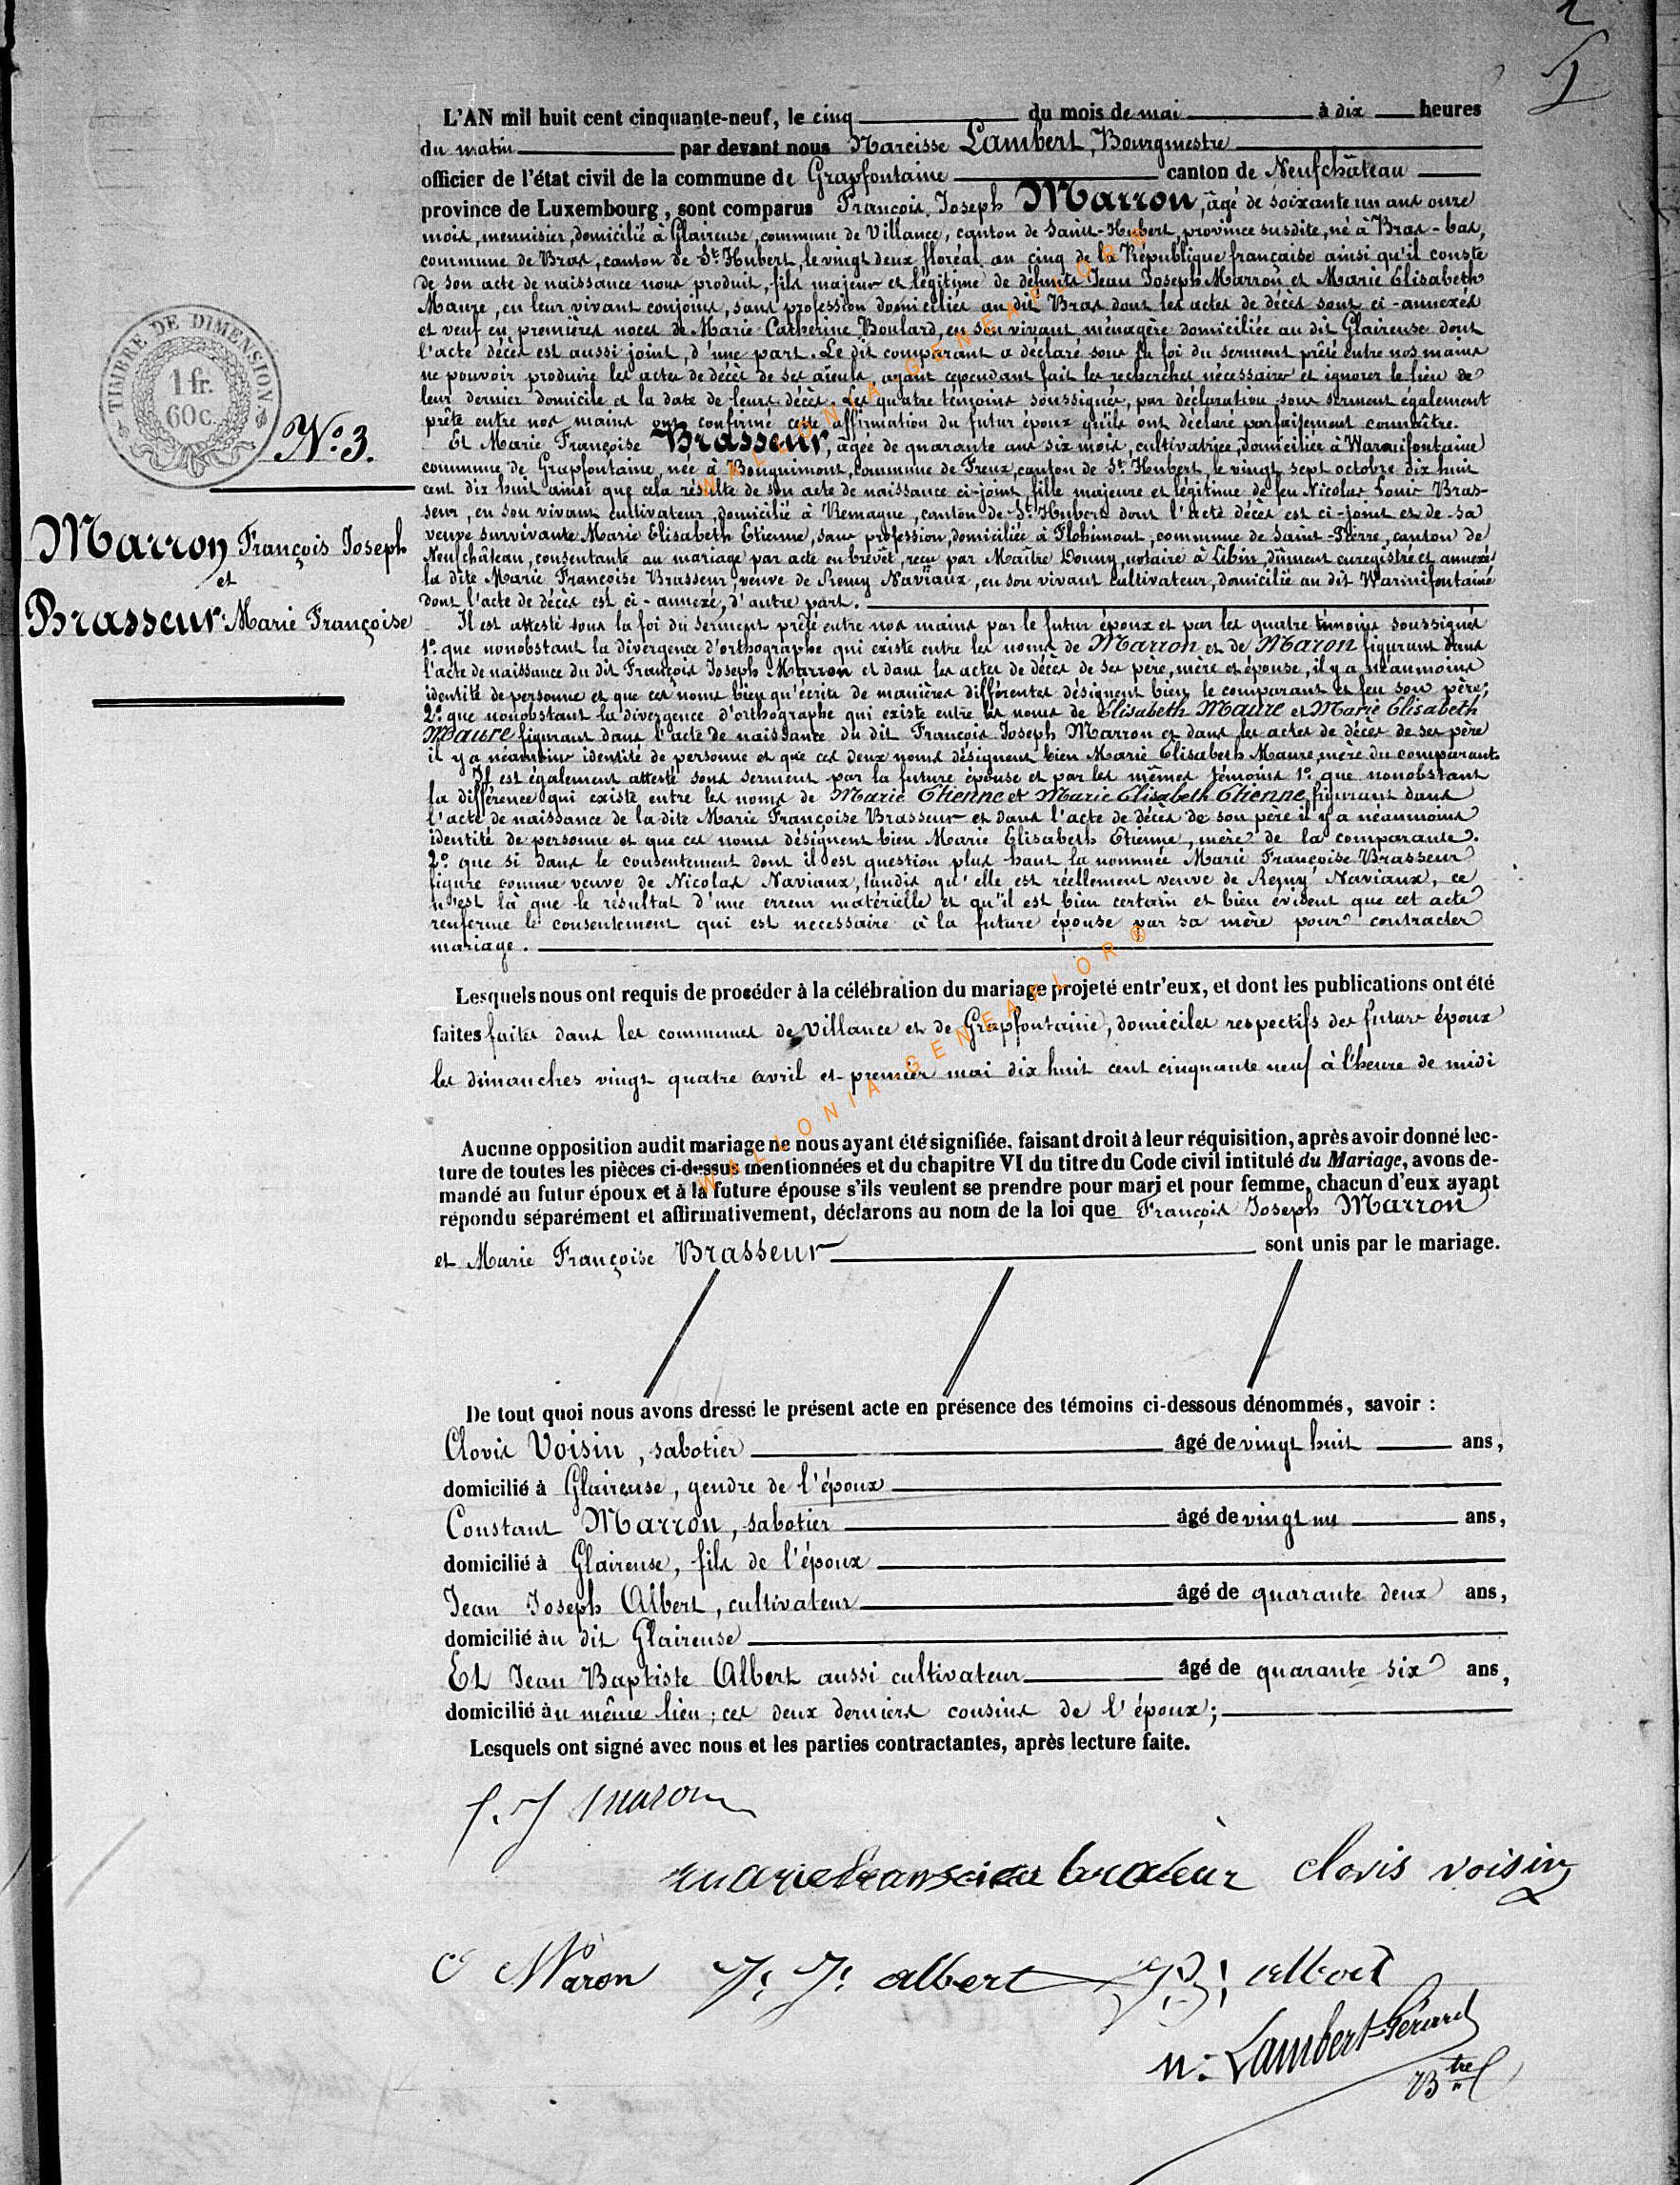 TIMBRE DE DIMENSION
1 fr.
60c.
N.o 3.
Marron François Joseph
et
Brasseur Marie Françoise
L'AN mil huit cent cinquante-neuf, le cinq du mois de mai à dix heures
du matin par devant nous Narcisse Lambert, Bourgmestre
officier de l'état civil de la commune de Grapfontaine canton de Neufchâteau
province de Luxembourg, sont comparus François Joseph Marron, âgé de soixante un ans onze
mois, menuisier, domicilié à Glaireuse, commune de Villance, canton de Saint-Hubert, province susdite, né à Bras-bas,
commune de Bras, canton de St. Hubert, le vingt deux floréal an cinq de la République française ainsi qu'il conste
de son acte de naissance nous produit, fils majeur et légitime de défunts Jean Joseph Marron et Marie Elisabeth
Maure, en leur vivant conjoins, sans profession domiciliés au dit Bras dont les actes de décès sont ci-annexés
et veuf en premières noces de Marie Catherine Boulard, en son vivant ménagère domiciliée au dit Glaireuse dont
l'acte décès est aussi joint, d'une part. Le dit comparant a déclaré sous la foi du serment prêté entre nos mains
ne pouvoir produire les actes de décès de ses aïeuls, ayant cependant fait les recherches nécessaires et ignorer le lieu de
leur dernier domicile et la date de leurs décès. Les quatre témoins soussignés, par déclaration sous serment également
prêté entre nos mains ont confirmé cette affirmation du futur époux qu'ils ont déclaré parfaitement connaître.
Et Marie Françoise Brasseur, âgée de quarante ans six mois, cultivatrice, domiciliée à Warmifontaine
commune de Grapfontaine, née à Bougnimont, commune de Freux, canton de St. Houbert, le vingt sept octobre dix huit
cent dix huit ainsi que cela résulte de son acte de naissance ci-joint, fille majeure et légitime de feu Nicolas Louis Bras-
seur, en son vivant cultivateur, domicilié à Remagne, canton de St. Hubert dont l'acte décès est ci-joint et de sa
veuve survivante Marie Elisabeth Etienne, sans profession, domiciliée à Flohimont, commune de Saint-Pierre, canton de
Neufchâteau, consentante au mariage par acte en brevêt, reçu par Maître Donny, notaire à Libin, dûment enregistré et annexé,
la dite Marie Françoise Brasseur, veuve de Remy Naviaux, en son vivant cultivateur, domicilié au dit Warmifontaine
dont l'acte de décès est ci-annexé, d'autre part.
Il est attesté sous la foi du serment prêté entre nos mains par le futur époux et par les quatre témoins soussignés
1.o que nonobstant la divergence d'orthographe qui existe entre les noms de Marron et de Maron figurant dans
l'acte de naissance du dit François Joseph Marron et dans les actes de décès de ses père, mère et épouse, il y a néanmoins
identité de personne et que ces noms bien qu'écrits de manières différentes désignent bien le comparant et feu son père;
2.o que nonobstant la divergence d'orthographe qui existe entre les noms de Elisabeth Maure et Marie Elisabeth
Maure figurant dans l'acte de naissance du dit François Joseph Marron et dans les actes de décès de ses père
il y a néanmoins identité de personne et que ces deux noms désignent bien Marie Elisabeth Maure, mère du comparant.
Il est également attesté sous serment par la future épouse et par les mêmes témoins 1.o que nonobstant
la différence qui existe entre les noms de Marie Etienne et Marie Elisabeth Etienne figurant dans
l'acte de naissance de la dite Marie Françoise Brasseur et dans l'acte de décès de son père il y a néanmoins
identité de personne et que ces noms désignent bien Marie Elisabeth Etienne, mère de la comparante.
2.o que si dans le consentement dont il est question plus haut la nommée Marie Françoise Brasseur
figure comme veuve de Nicolas Naviaux, tandis qu'elle est réellement veuve de Remy Naviaux, ce
n'est là que le résultat d'une erreur matérielle et qu'il est bien certain et bien évident que cet acte
renferme le consentement qui est necessaire à la future épouse par sa mère pour contracter
mariage.
Lesquels nous ont requis de procéder à la célébration du mariage projeté entr'eux, et dont les publications ont été
faites faites dans les communes de Villance et de Grapfontaine, domiciles respectifs des futurs époux
les dimanches vingt quatre avril et premier mai dix huit cent cinquante neuf à l'heure de midi
Aucune opposition audit mariage ne nous ayant été signifiée, faisant droit à leur réquisition, après avoir donné lec-
ture de toutes les pièces ci-dessus mentionnées et du chapitre VI du titre du Code civil intitulé du Mariage, avons de-
mandé au futur époux et à la future épouse s'ils veulent se prendre pour mari et pour femme, chacun d'eux ayant
répondu séparément et affirmativement, déclarons au nom de la loi que François Joseph Marron
et Marie Françoise Brasseur sont unis par le mariage.
De tout quoi nous avons dressé le présent acte en présence des témoins ci-dessous dénommés, savoir :
Clovis Voisin, sabotier âgé de vingt huit ans,
domicilié à Glaireuse, gendre de l'époux
Constant Marron, sabotier âgé de vingt un ans,
domicilié à Glaireuse, fils de l'époux
Jean Joseph Albert, cultivateur âgé de quarante deux ans,
domicilié au dit Glaireuse
Et Jean Baptiste Albert aussi cultivateur âgé de quarante six ans,
domicilié au même lieu; ces deux derniers cousins de l'époux;
Lesquels ont signé avec nous et les parties contractantes, après lecture faite.
f. J maron
clovis voisin
C Maron J. J. albert J. B. albert
N. Lambert-Gérard
Btre
WALLONIA GENEAFLOR ®
WALLONIA GENEAFLOR ®